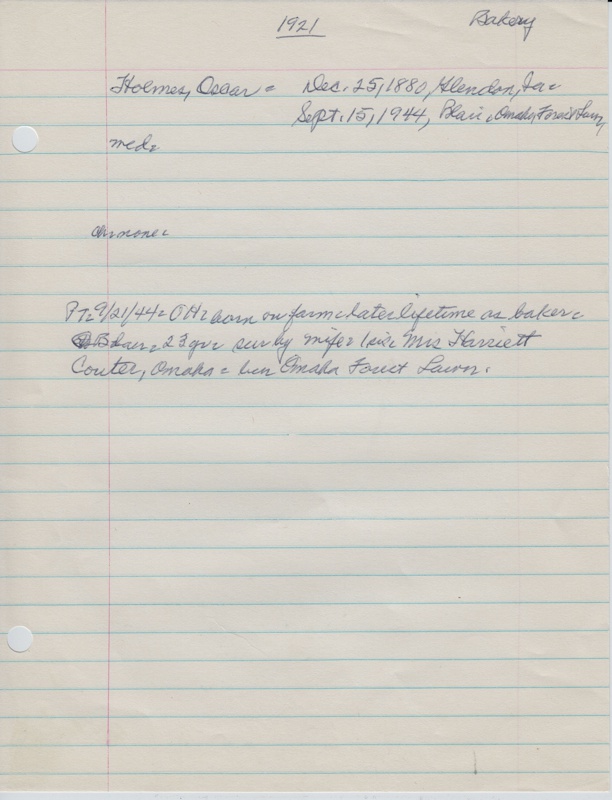 1921 Bakery
Holmes, Oscar = Dec. 25, 1880, Glendon, Ia =
Sept. 15, 1944, Blair, Omaha, Forest Lawn
med=
ch= none =
PT= 9/21/44= OH= born on farm= later lifetime as baker=
Blair= 23 yr= sur by wife= 1 sis= Mrs Harriett
Couter, Omaha = bur Omaha Forest Lawn.